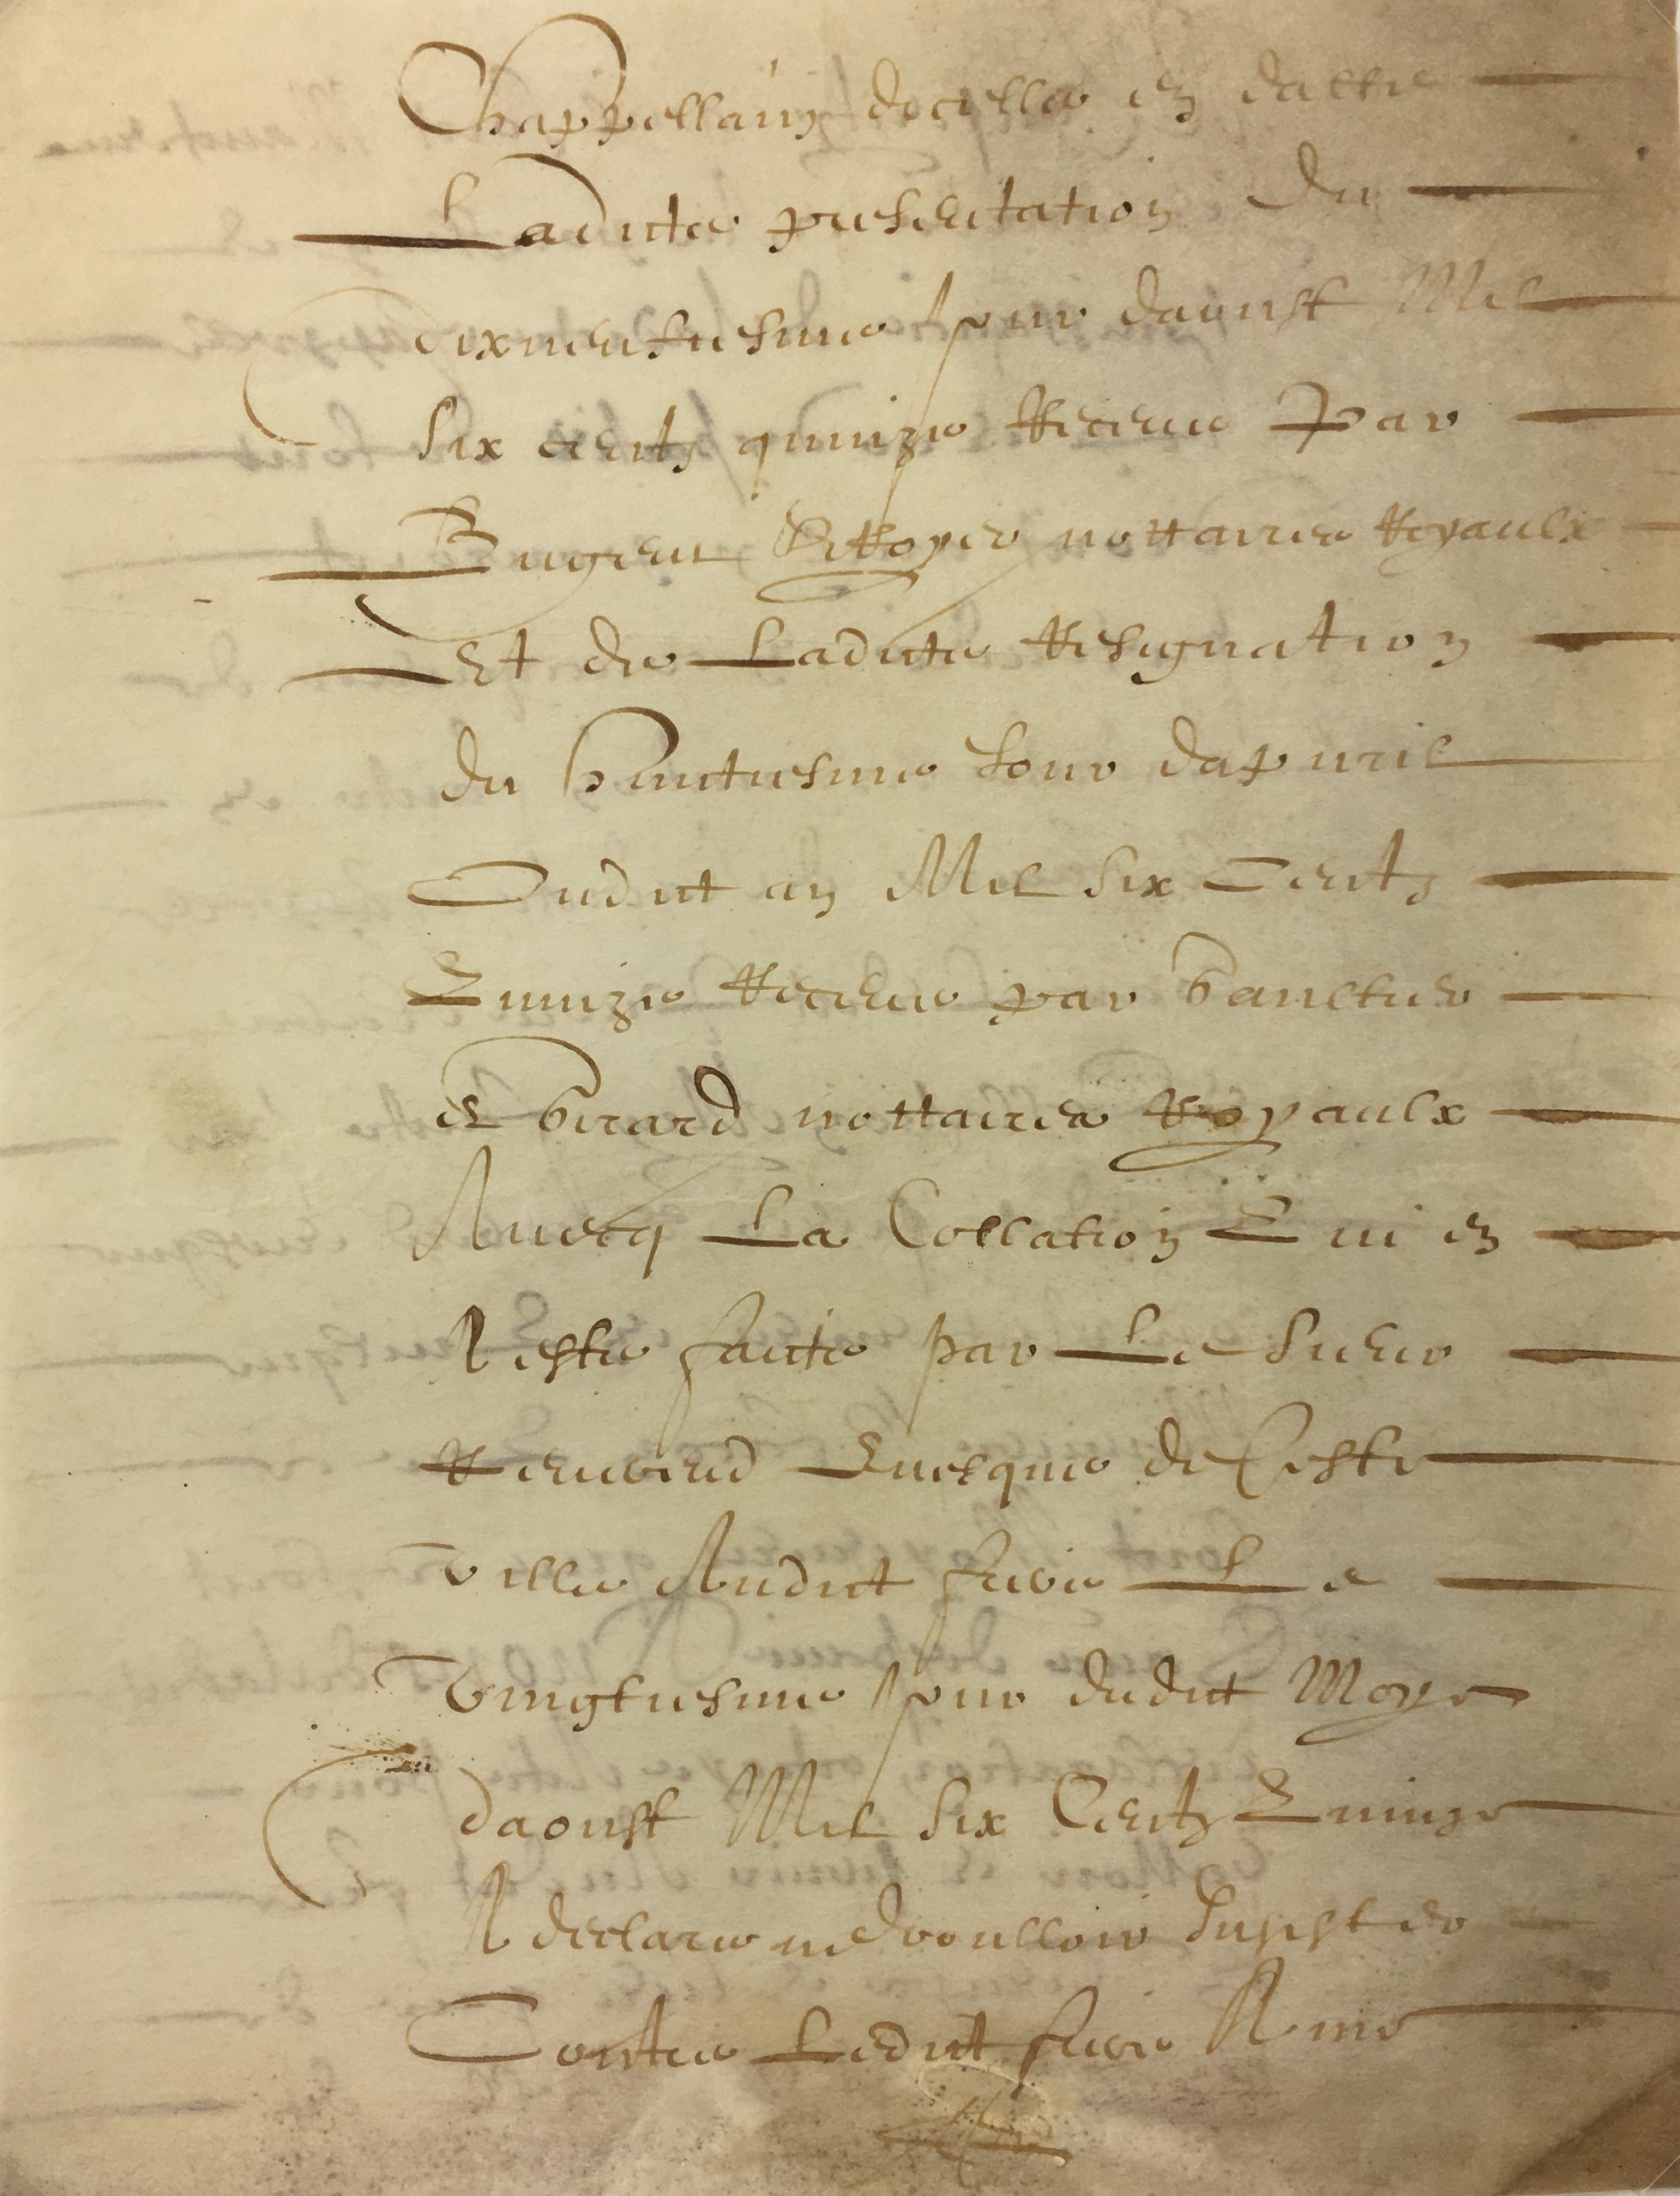 Chappellain dicelle en datte
Ladicte presentation du
dixneufiesme jour daoust Mil
six centz quinze Receue Par
Bugent & Royer nottaires Royaulx
Et de Ladicte Resignation
du huictiesme Jour dapuril
Oudict an Mil six Centz
Quinze Receue par Gaultier
et Girard nottaires Royaulx
Auecq La Collation Qui en
A este faicte par Le sieur
Reuerend Euesque de Ceste
Ville Audict frere Le
Vingtiesme Jour dudict Moys
daoust Mil six Centz Quinze
A declare ne voulloir Insister
Contre Ledict frere